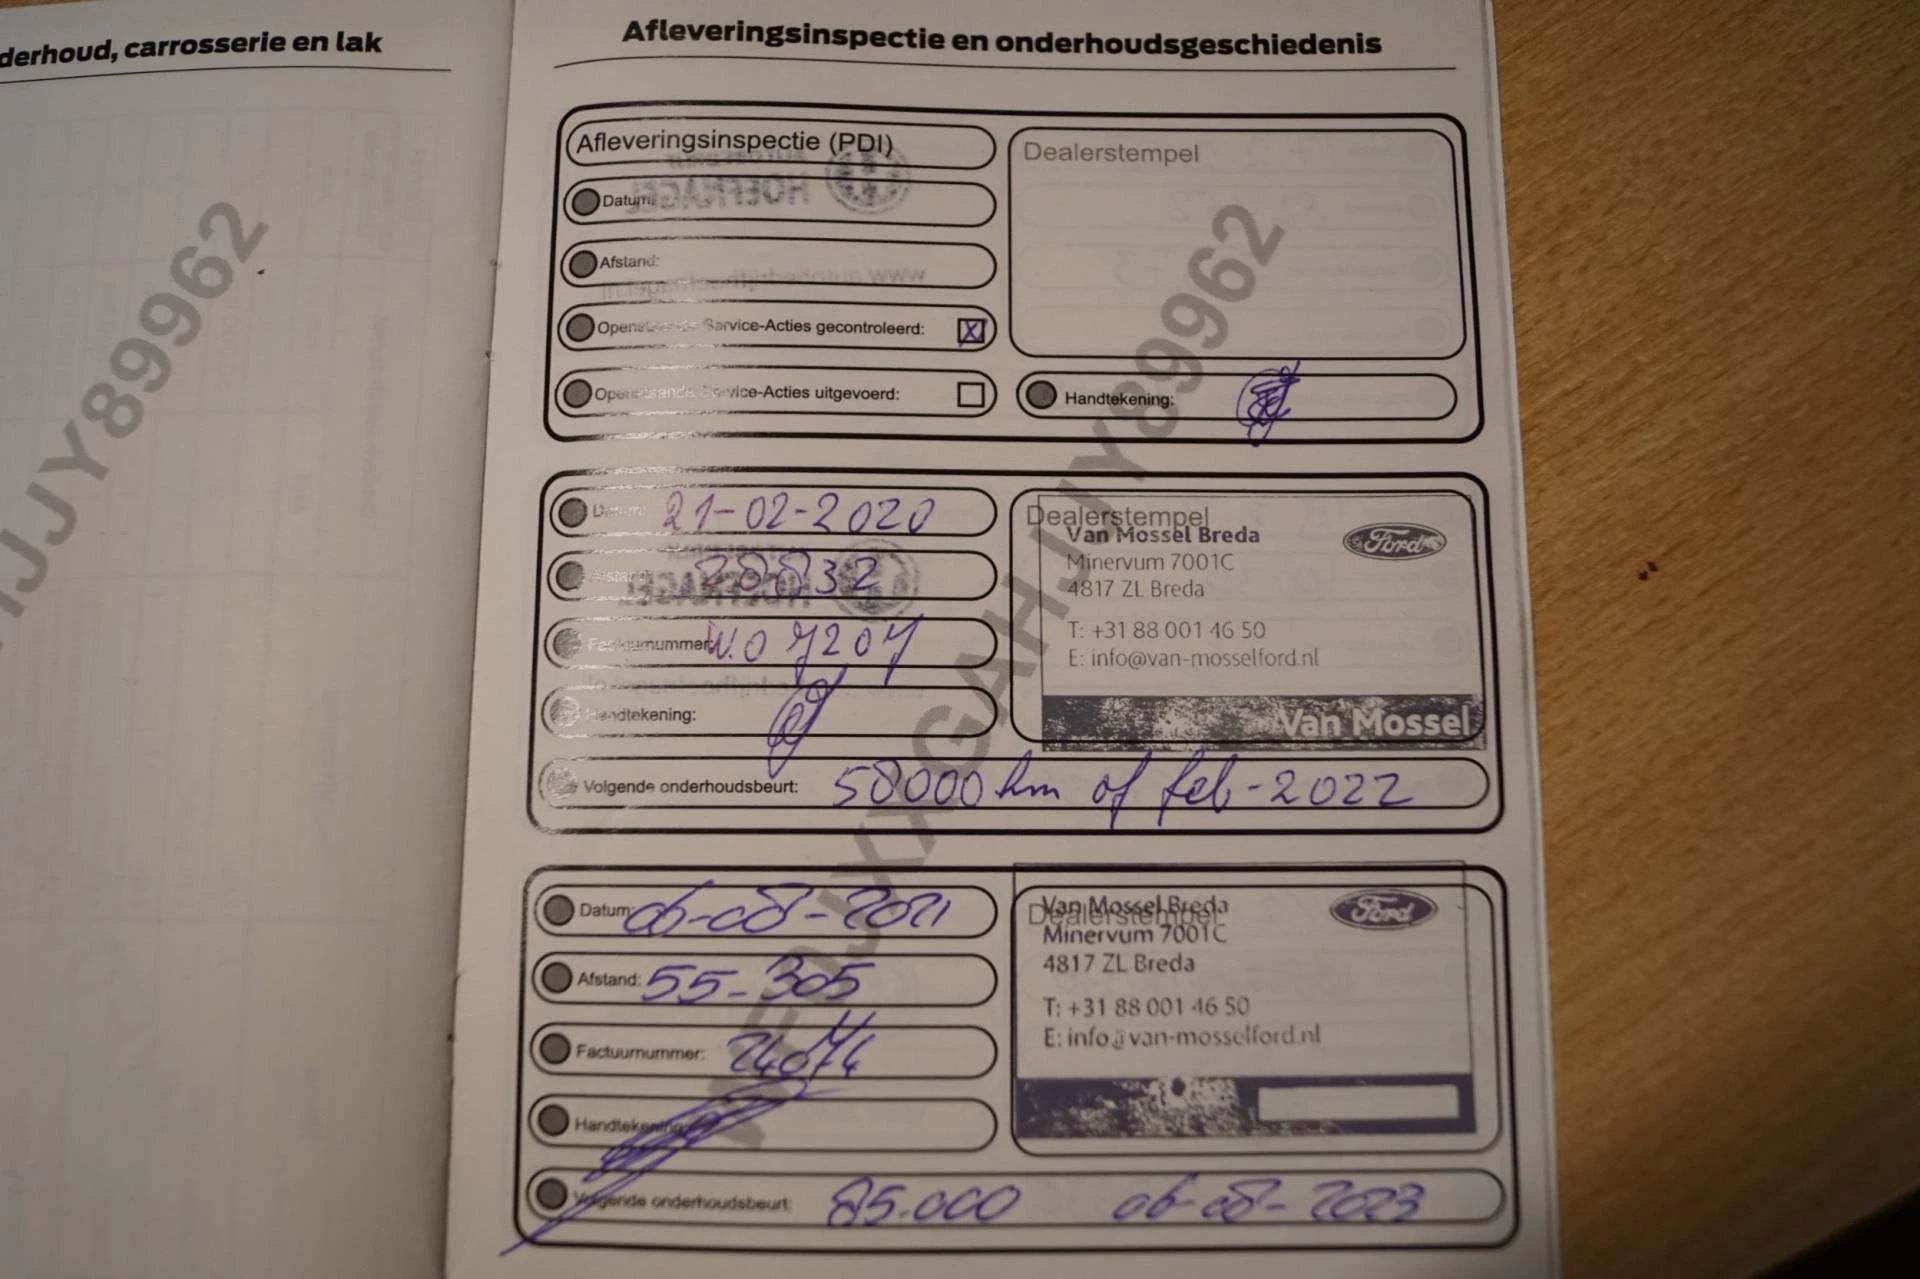 derhoud, carrosserie en lak
Afleveringsinspectie en onderhoudsgeschiedenis
Afleveringsinspectie (PDI)
Datum:
Afstand:
Openstaande Service-Acties gecontroleerd: X
Openstaande Service-Acties uitgevoerd:
Dealerstempel
Handtekening:
Datum: 21-02-2020
Afstand: 28832
Factuurnummer: W.O 7207
Handtekening:
Volgende onderhoudsbeurt: 58000 km of feb-2022
Dealerstempel
Van Mossel Breda
Ford
Minervum 7001C
4817 ZL Breda
T: +31 88 001 46 50
E: info@van-mosselford.nl
Van Mossel
Datum: 06-08-2021
Afstand: 55-305
Factuurnummer: 24074
Handtekening:
Volgende onderhoudsbeurt: 85.000 06-08-2023
Dealerstempel
Van Mossel Breda
Ford
Minervum 7001C
4817 ZL Breda
T: +31 88 001 46 50
E: info@van-mosselford.nl